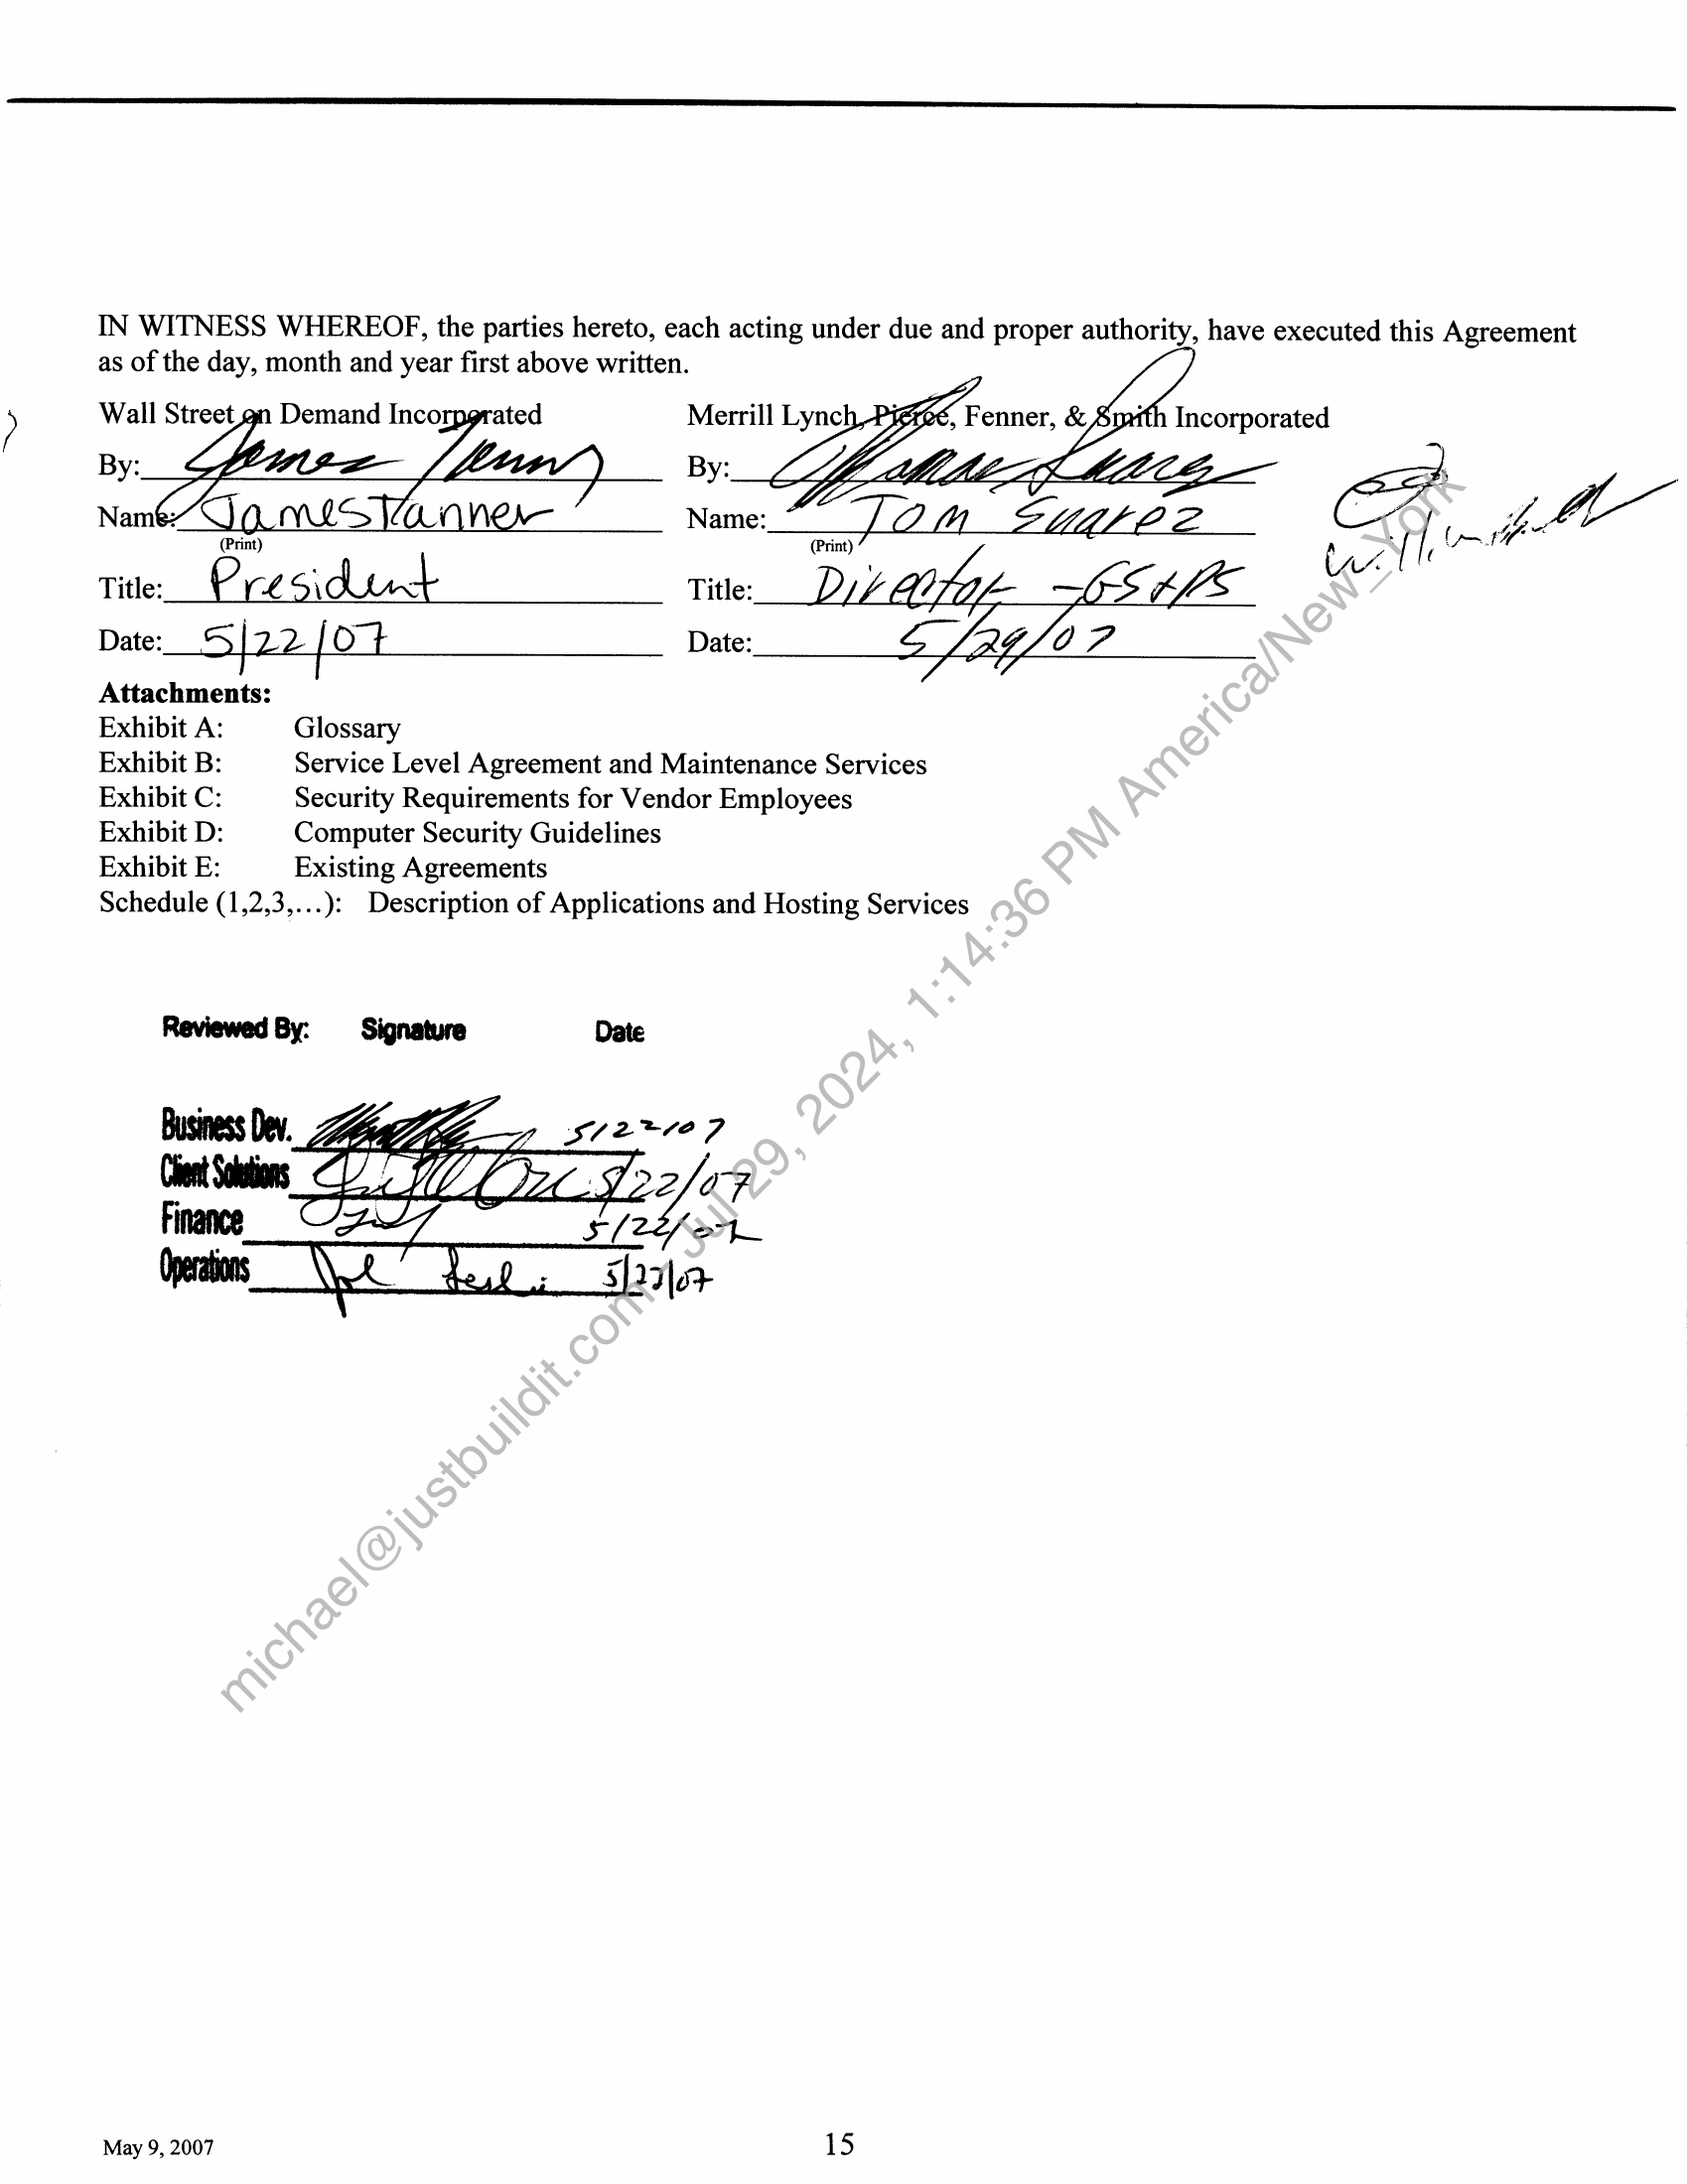 IN WITNESS WHEREOF, the parties hereto, each acting under due and proper authority, have executed this Agreement
as of the day, month and year first above written.
Wall Street on Demand Incorporated
By: James Tanner
Name: James Tanner
(Print)
Title: President
Date: 5/22/07
Merrill Lynch, Pierce, Fenner, & Smith Incorporated
By: Thomas Suarez
Name: Tom Suarez
(Print)
Title: Director - GS+PS
Date: 5/29/07
Attachments:
Exhibit A: Glossary
Exhibit B: Service Level Agreement and Maintenance Services
Exhibit C: Security Requirements for Vendor Employees
Exhibit D: Computer Security Guidelines
Exhibit E: Existing Agreements
Schedule (1,2,3,…): Description of Applications and Hosting Services
Reviewed By: Signature Date
Business Dev. 5/22/07
Client Solutions 5/22/07
Finance 5/22/07
Operations 5/23/07
michael@justbuildit.com - Jul 29, 2024, 1:14:36 PM America/New_York
May 9, 2007
15